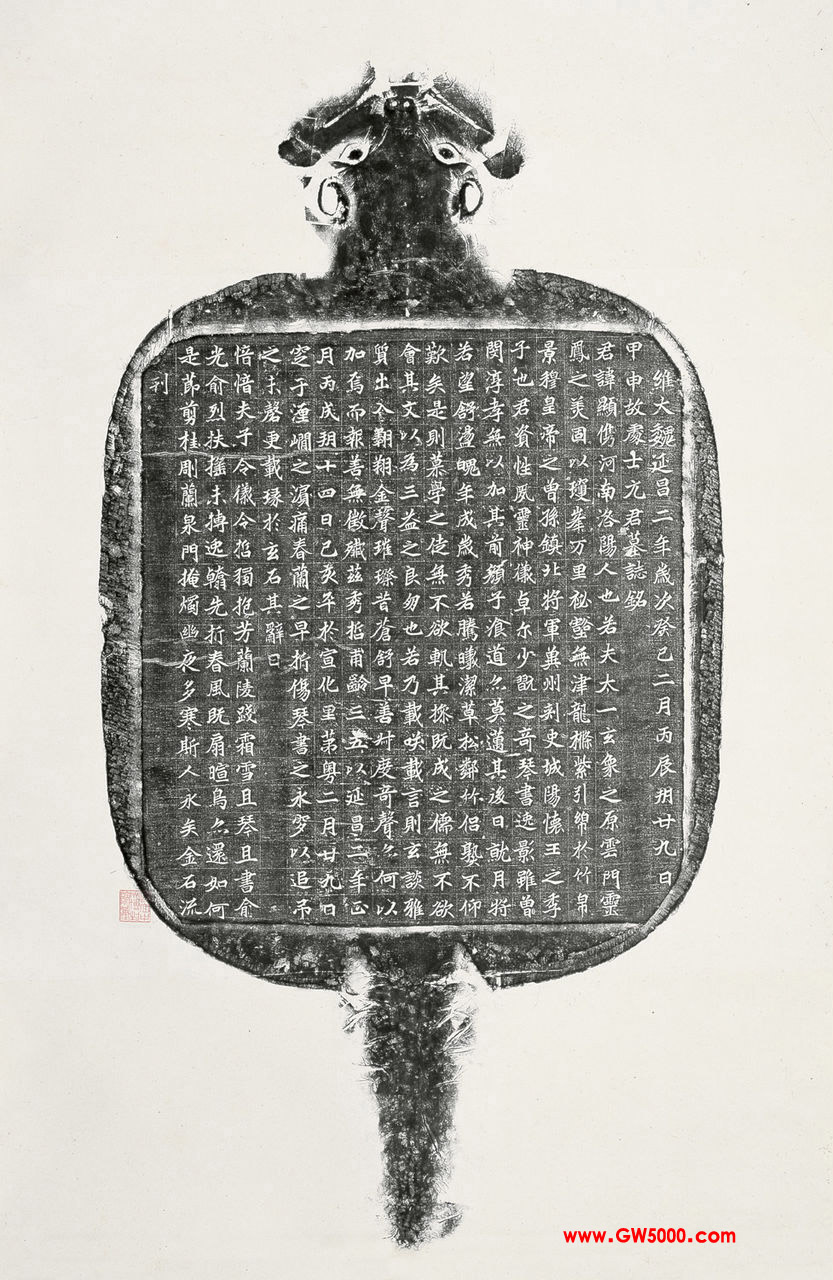 維大魏延昌二年歲次癸巳二月丙辰朔廿九日
甲申故處士元君墓誌銘
君諱顯儁河南洛陽人也若夫太一玄象之原雲門靈
鳳之美固以瓊峯万里祕壑無津龍檦紫引綿於竹帛
景穆皇帝之曾孫鎮北將軍冀州刾史城陽懷王之季
子也君資性夙靈神儀卓尒少翫之奇琴書逸影雖曾
閔淳孝無以加其前顏子湌道亦莫邁其後日就月將
若望舒盪魄年成歲秀若騰曦潔草松鄰竹侶孰不仰
歎矣是則慕學之徒無不欲軌其操既成之儒無不欲
會其文以為三益之良朋也若乃載咲載言則玄談雅
質出入翱翔金聲璀璨昔蒼舒早善對度奇聲亦何以
加焉而報善無徵殲茲秀哲甫齡三五以延昌二年正
月丙戌朔十四日己亥卒於宣化里第粵二月廿九日
窆于瀍澗之濱痛春蘭之早折傷琴書之永穸以追弔
之未罄更載琢於玄石其辭曰
愔愔夫子令儀令哲獨抱芳蘭陵踐霜雪且琴且書俞
光俞烈扶搖未搏逸翰先折春風既扇暄鳥亦還如何
是節剪桂彫蘭泉門掩燭幽夜多寒斯人永矣金石流
刊
www.GW5000.com